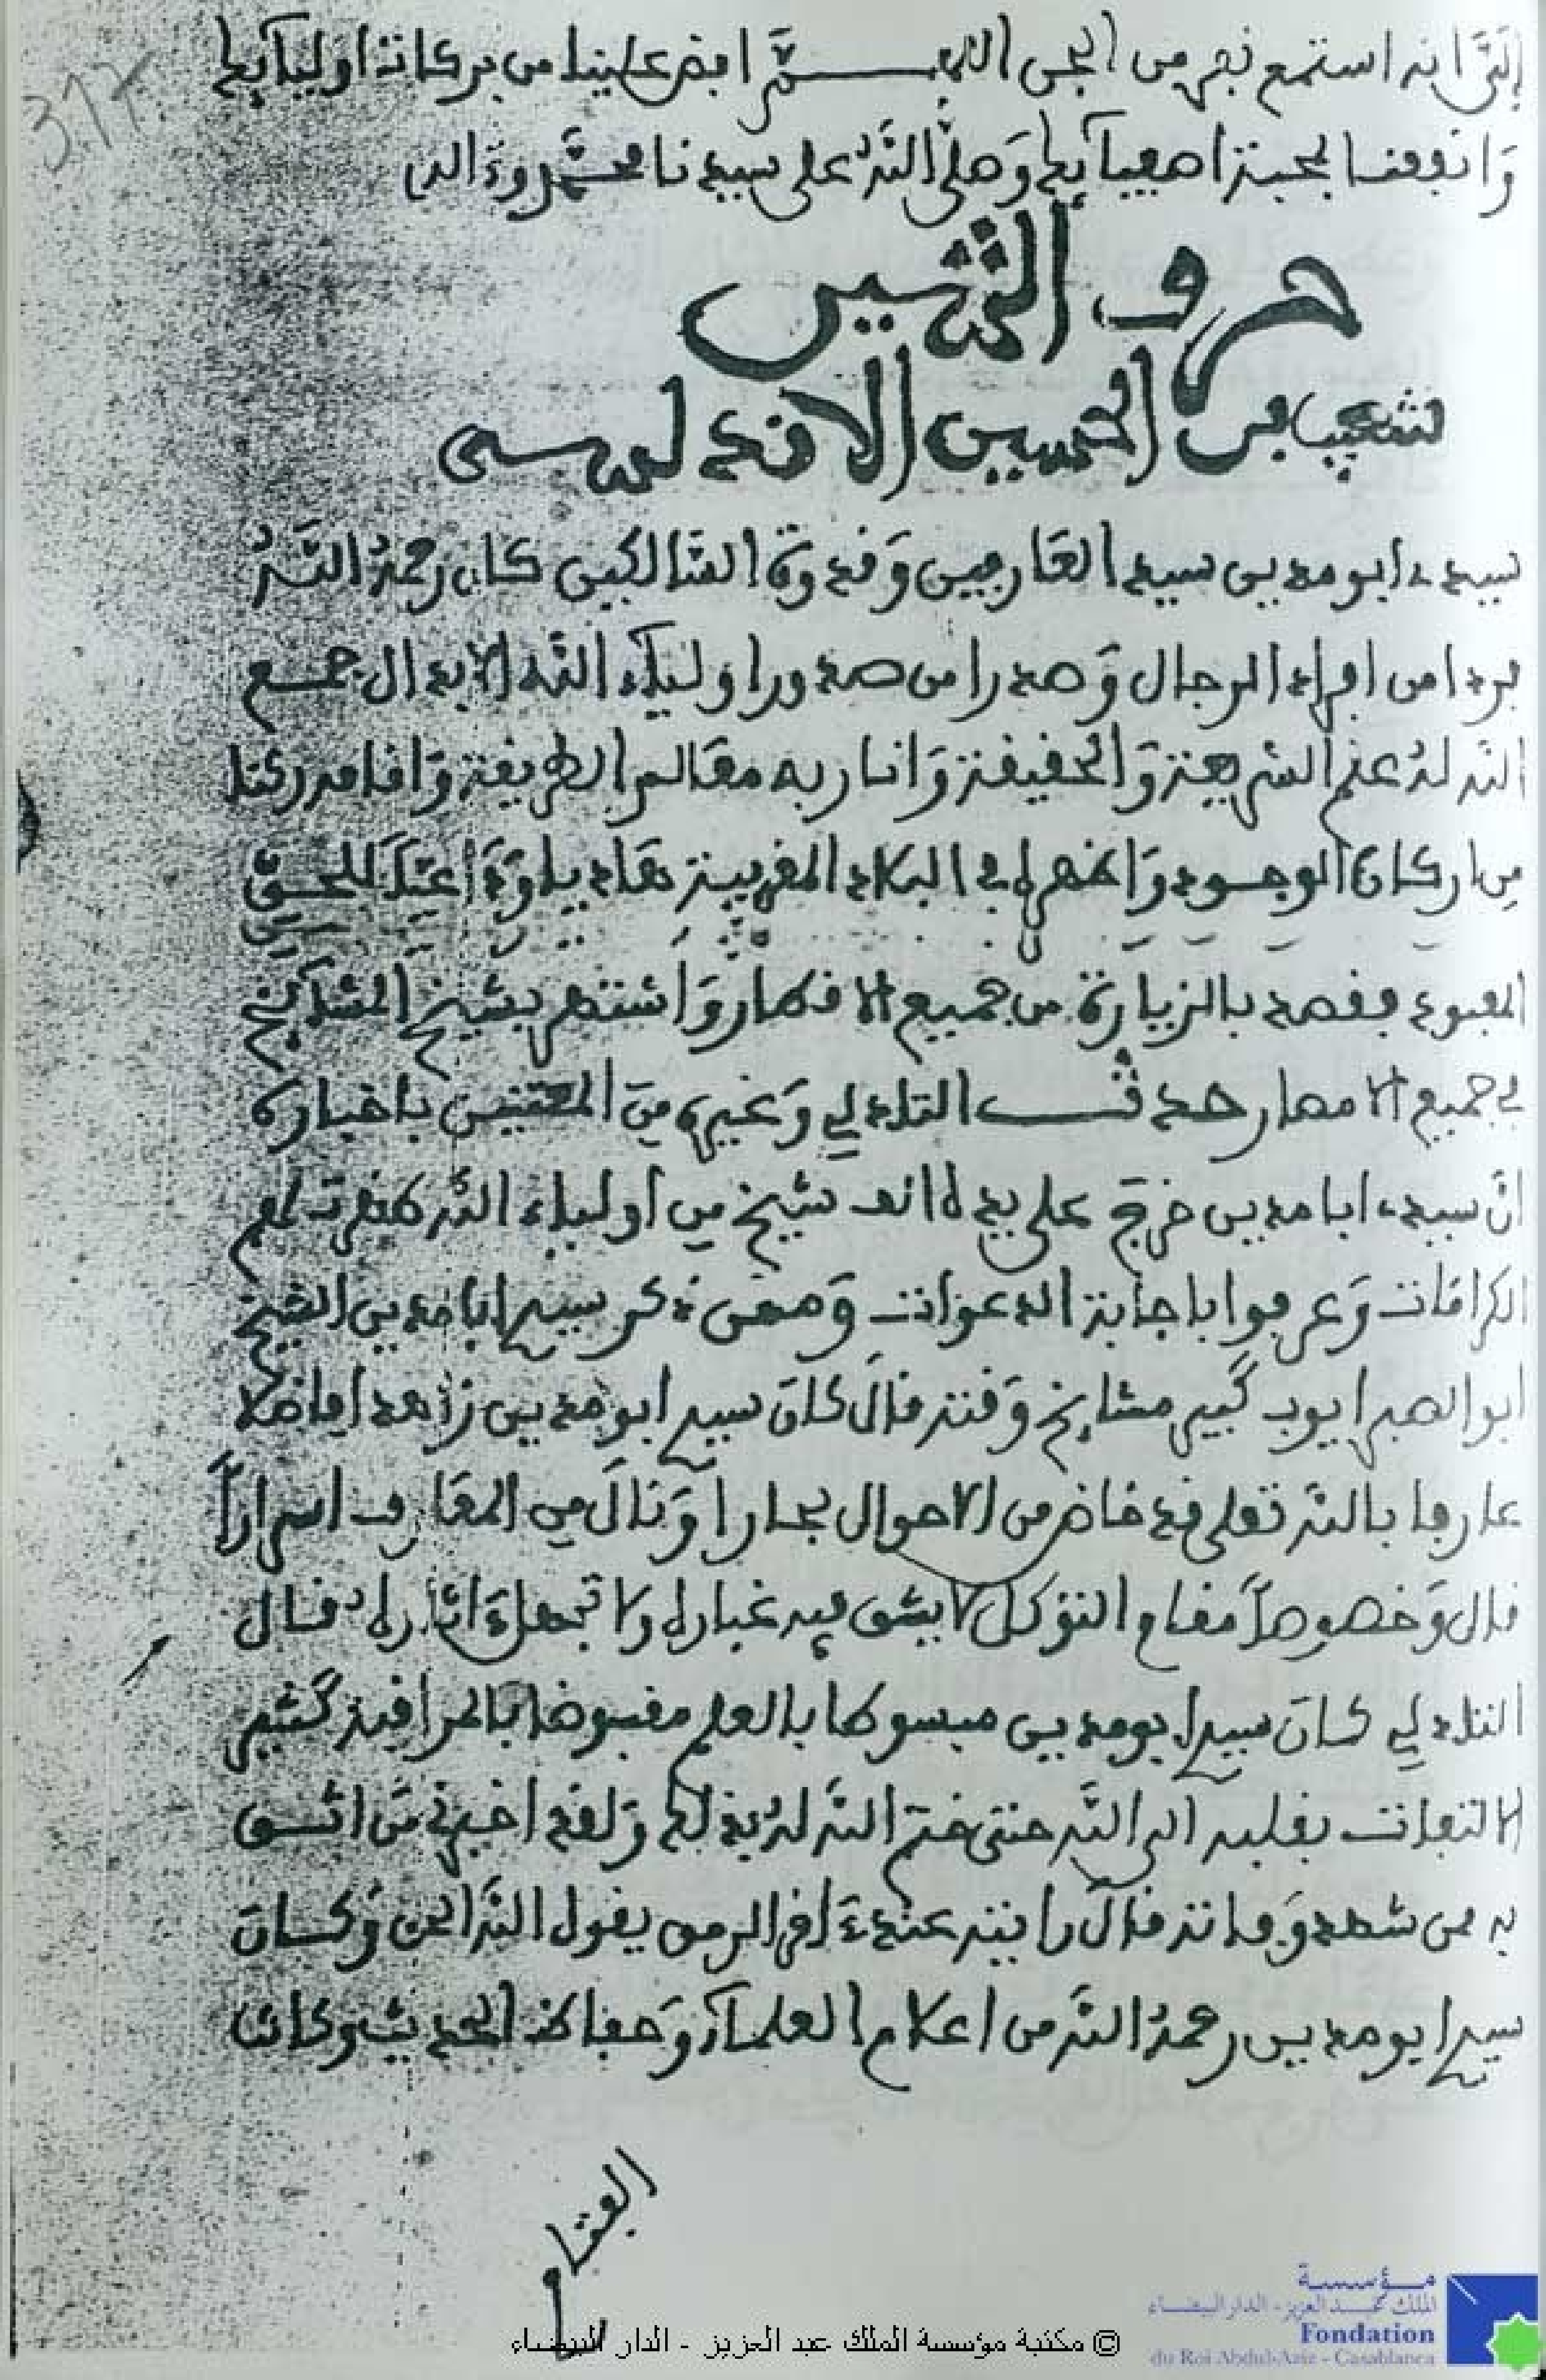 إلي انه استمع نفر من الجن اللهم افض علينا من بركات اوليآيك
وانفعنا بمحبة اصفيآيك وصلى الله على سيدنا محمد وءاله
حرف الشين
شعيب بن الحسين الاندلسي
سيدي ابو مدين سيد العارفين وقدوة السالكين كان رحمه الله
فردا من افراد الرجال وصدرا من صدور اوليآء الله الابدال جمع
الله له علم الشريعة والحقيقة وانار به معالم الطريقة واقامه ركنا
من اركان الوجود واظهره في البلاد المغربية هاديا وداعيا للحق
المعبود فقصد بالزيارة من جميع الاقطار واشتهر بشيخ المشآيخ
في جميع الامصار حدث التادلي وغيره من المعتنين باخباره
ان سيدي ابا مدين خرج على يده الف شيخ من اولياء الله ظهرت لهم
الكرامات وعرفوا باجابة الدعوات وممن ذكر سيدي ابا مدين الشيخ
ابو الصبر ايوب كبير مشايخ وقته قال كان سيدي ابو مدين زاهدا فاضلا
عارفا بالله تعلى قد خاض من الاحوال بحارا ونال من المعارف اسرارا
قال وخصوصا مقام التوكل لا يشق فيه غباره ولا تجهل ءاثاره قال
التادلي كان سيدي ابو مدين مبسوطا بالعلم مقبوضا بالمراقبة كثير
الالتفات بقلبه الى الله حتى ختم الله له بذلك ولقد اخبرني من اثق
به ممن شهد وفاته قال رايته عند ءاخر الرمق يقول الله الحق وكان
سيدي ابو مدين رحمه الله من اعلام العلمآء وحفاظ الحديث وكان
مؤسسة
الملك عبد العزيز - الدار البيضاء
Fondation
du Roi Abdul-Aziz - Casablanca
© مكتبة مؤسسة الملك عبد العزيز - الدار البيضاء